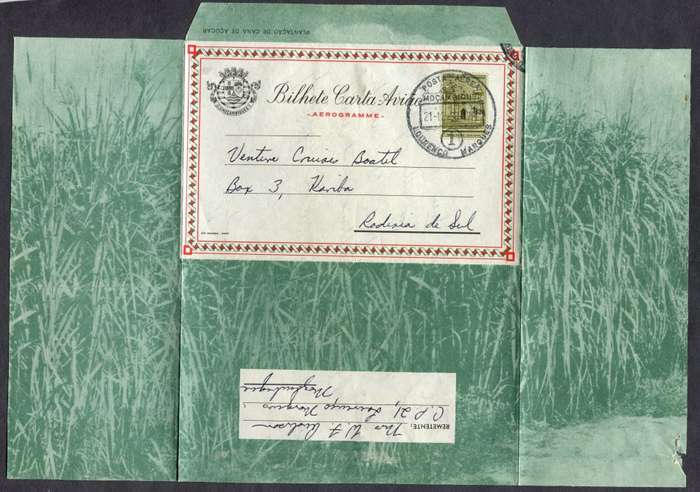 PLANTAÇÃO DE CANA DE AÇÚCAR
Bilhete Carta-Avião
- AEROGRAMME -
MOÇAMBIQUE
21-1
LOURENÇO MARQUES
1
Venture Cruises Boatel
Box 3, Kariba
Rodésia do Sul
REMETENTE: Mrs W F
C.P 21, Lourenço Marques